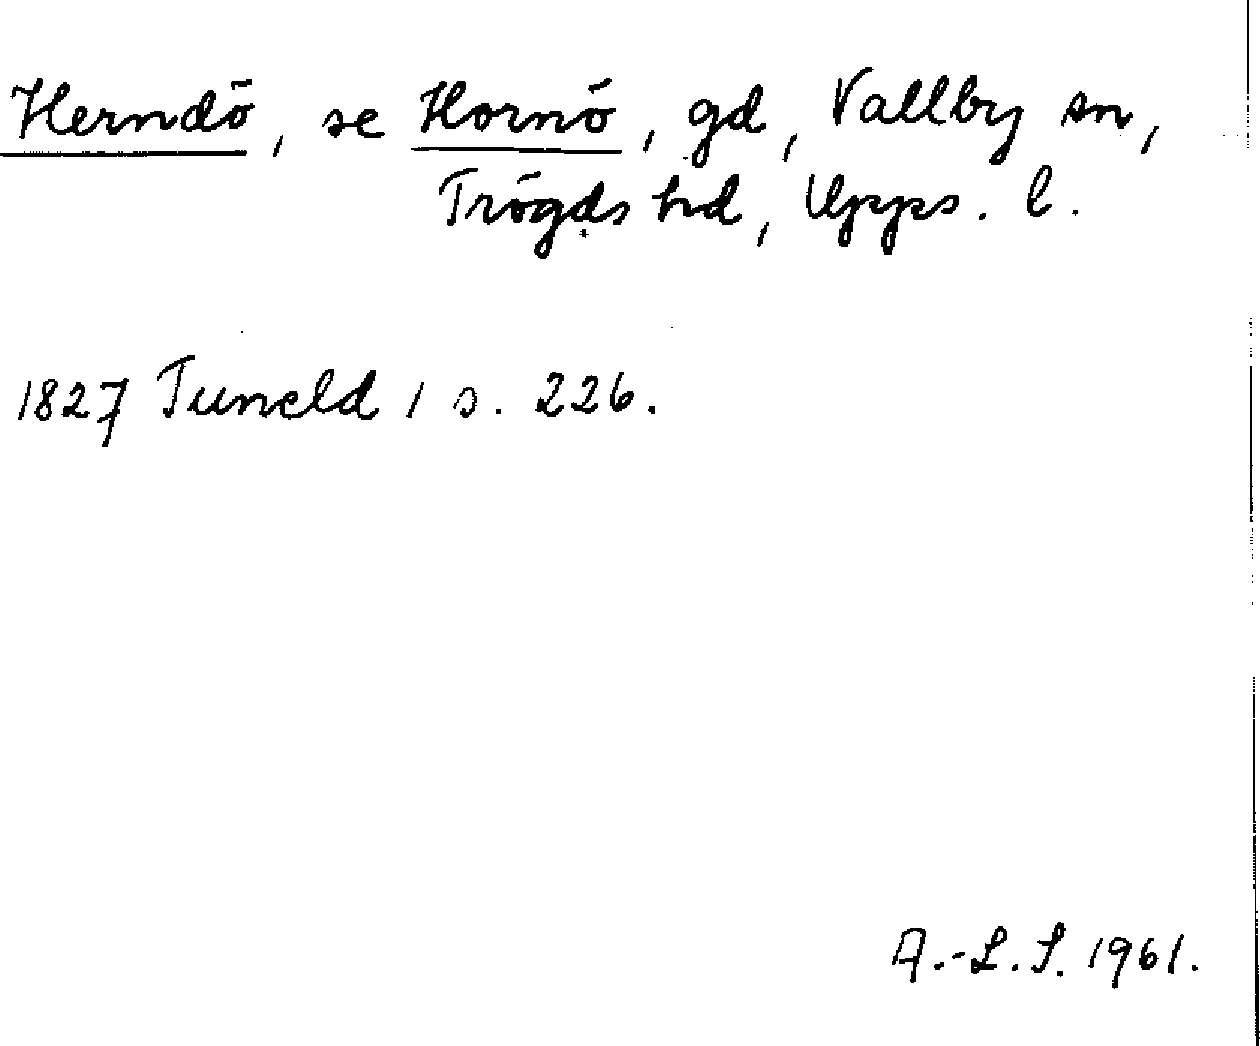 Herndö, se Hornö, gd, Vallby sn,
Trögds hd, Upps. l.
1827 Tuneld 1 s. 226.
A.-L. S. 1961.